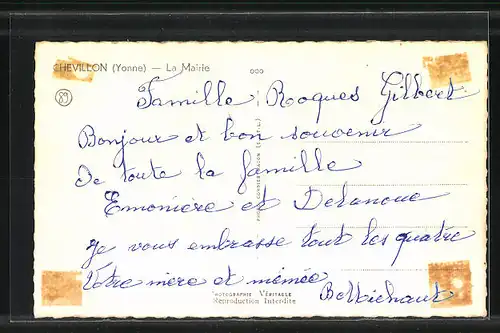 CHEVILLON (Yonne) — La Mairie
89
Famille Roques Gilbert
Bonjour et bon souvenir
De toute la famille
Emonière et Delanoue
je vous embrasse tout les quatre
Votre mère et mémée
PHOTOGRAPHIE VÉRITABLE
Reproduction Interdite